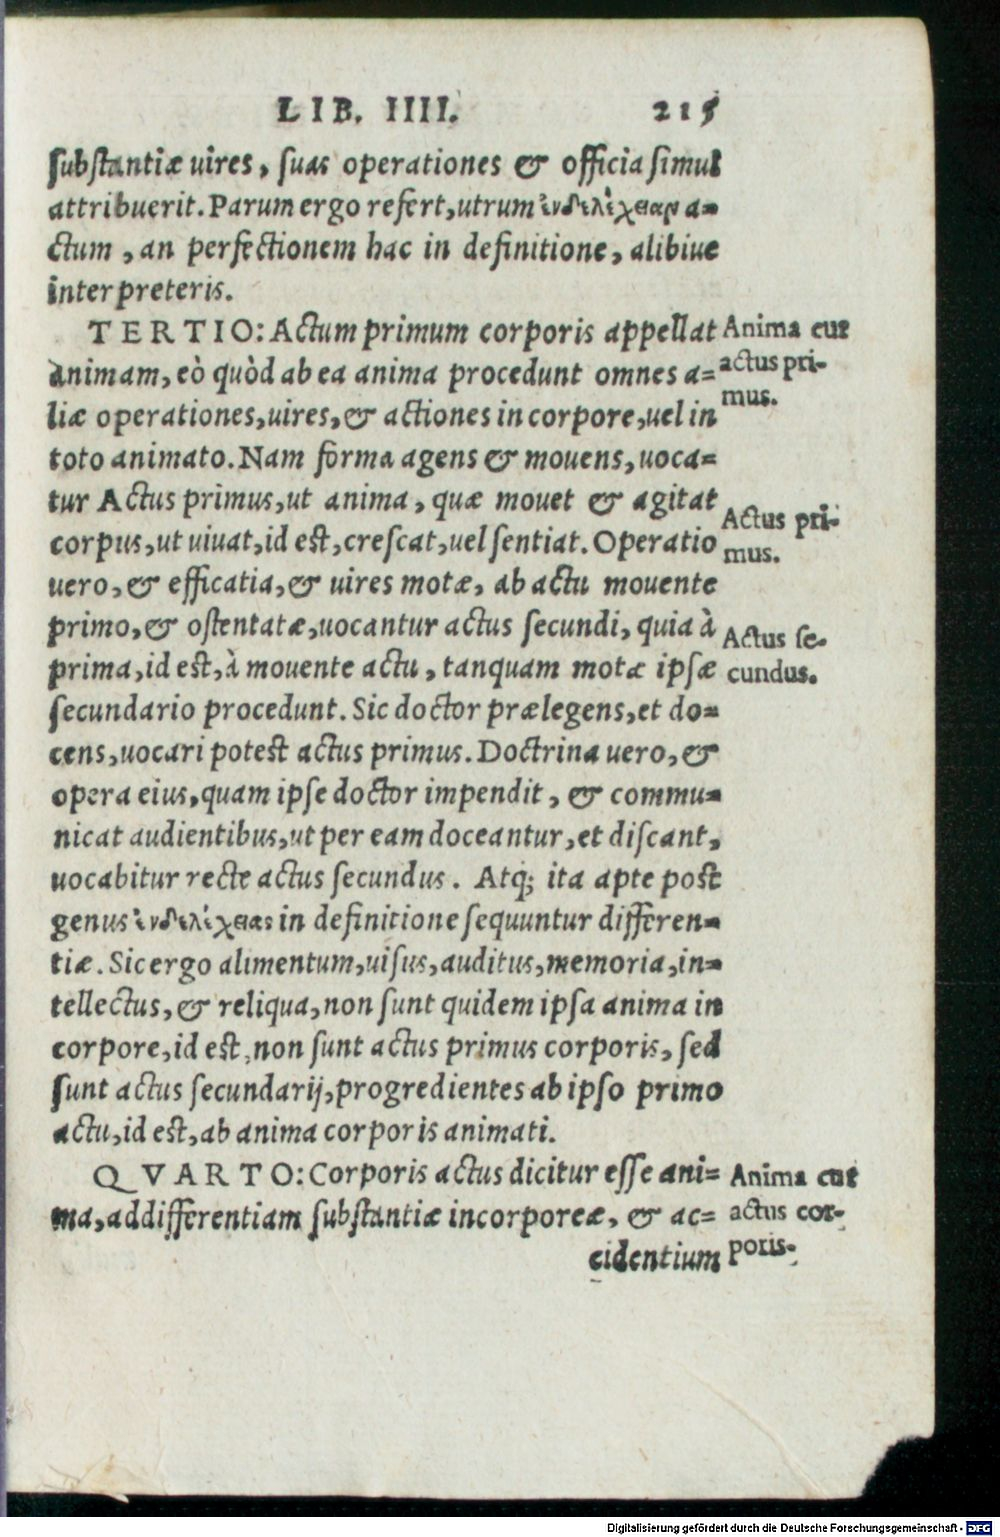 LIB. IIII. 215
substantiæ uires, suas operationes & officia simul
attribuerit. Parum ergo refert, utrum ἐνδελέχειαν a=
ctum, an perfectionem hac in definitione, alibiue
interpreteris.
TERTIO: Actum primum corporis appellat
animam, eò quòd ab ea anima procedunt omnes a=
liæ operationes, uires, & actiones in corpore, uel in
toto animato. Nam forma agens & mouens, uoca=
tur Actus primus, ut anima, quæ mouet & agitat
corpus, ut uiuat, id est, crescat, uel sentiat. Operatio
uero, & efficatia, & uires motæ, ab actu mouente
primo, & ostentatæ, uocantur actus secundi, quia à
prima, id est, à mouente actu, tanquam motæ ipsæ
secundario procedunt. Sic doctor prælegens, et do=
cens, uocari potest actus primus. Doctrina uero, &
opera eius, quam ipse doctor impendit, & commu=
nicat audientibus, ut per eam doceantur, et discant,
uocabitur recte actus secundus. Atq; ita apte post
genus ἐνδελέχειας in definitione sequuntur differen=
tiæ. Sic ergo alimentum, uisus, auditus, memoria, in=
tellectus, & reliqua, non sunt quidem ipsa anima in
corpore, id est, non sunt actus primus corporis, sed
sunt actus secundarij, progredientes ab ipso primo
actu, id est, ab anima corporis animati.
QVARTO: Corporis actus dicitur esse ani=
ma, ad differentiam substantiæ incorporeæ, & ac=
cidentium
Anima cur
actus pri-
mus.
Actus pri-
mus.
Actus se-
cundus.
Anima cur
actus cor-
poris.
Digitalisierung gefördert durch die Deutsche Forschungsgemeinschaft - DFG